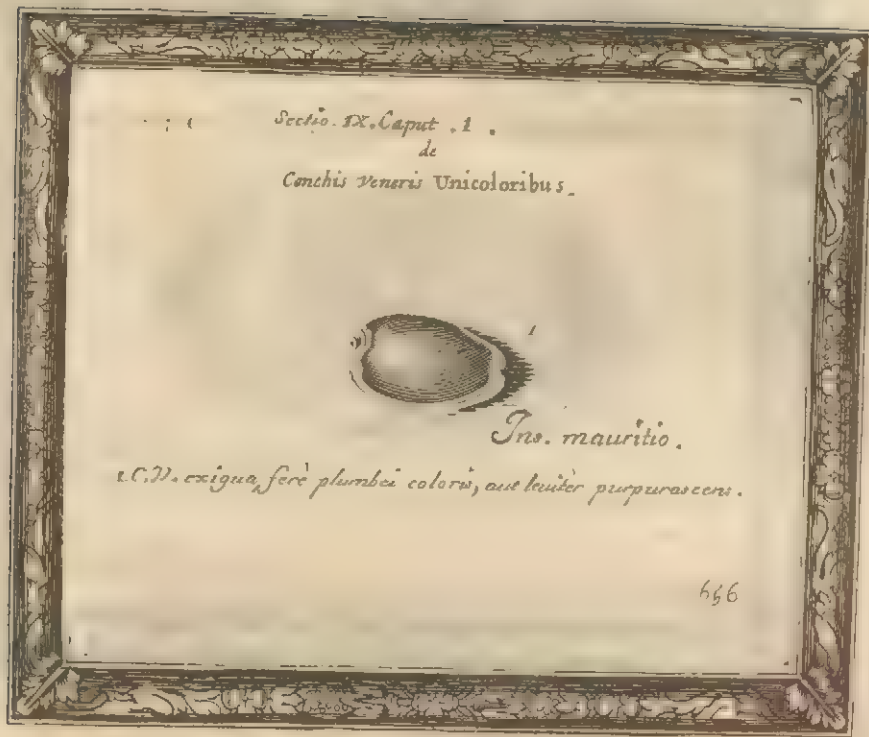 Sectio. IX. Caput. 1.
de
Conchis Veneris Unicoloribus.
1
Ins. mauritio.
1. C.V. exigua, ferè plumbei coloris, aut leuitèr purpurascens.
656